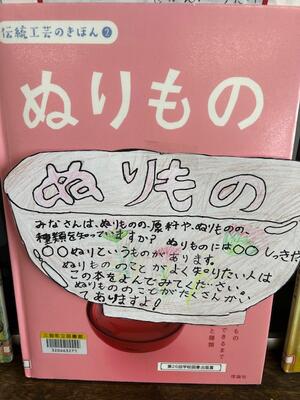 伝統工芸のきほん②
ぬりもの
ぬりもの
みなさんは、ぬりものの、原料や、ぬりものの、
種類を知ってますか? ぬりものには〇〇しっきだ
〇〇ぬりというものが あります。
ぬりもののことがよく知りたい人は
この本をよんでみてください。
ぬりもののことがたくさんかい
てありますよ!
もの
できるまで
と種類
三鷹市立図書館
第20回学校図書出版賞
理論社